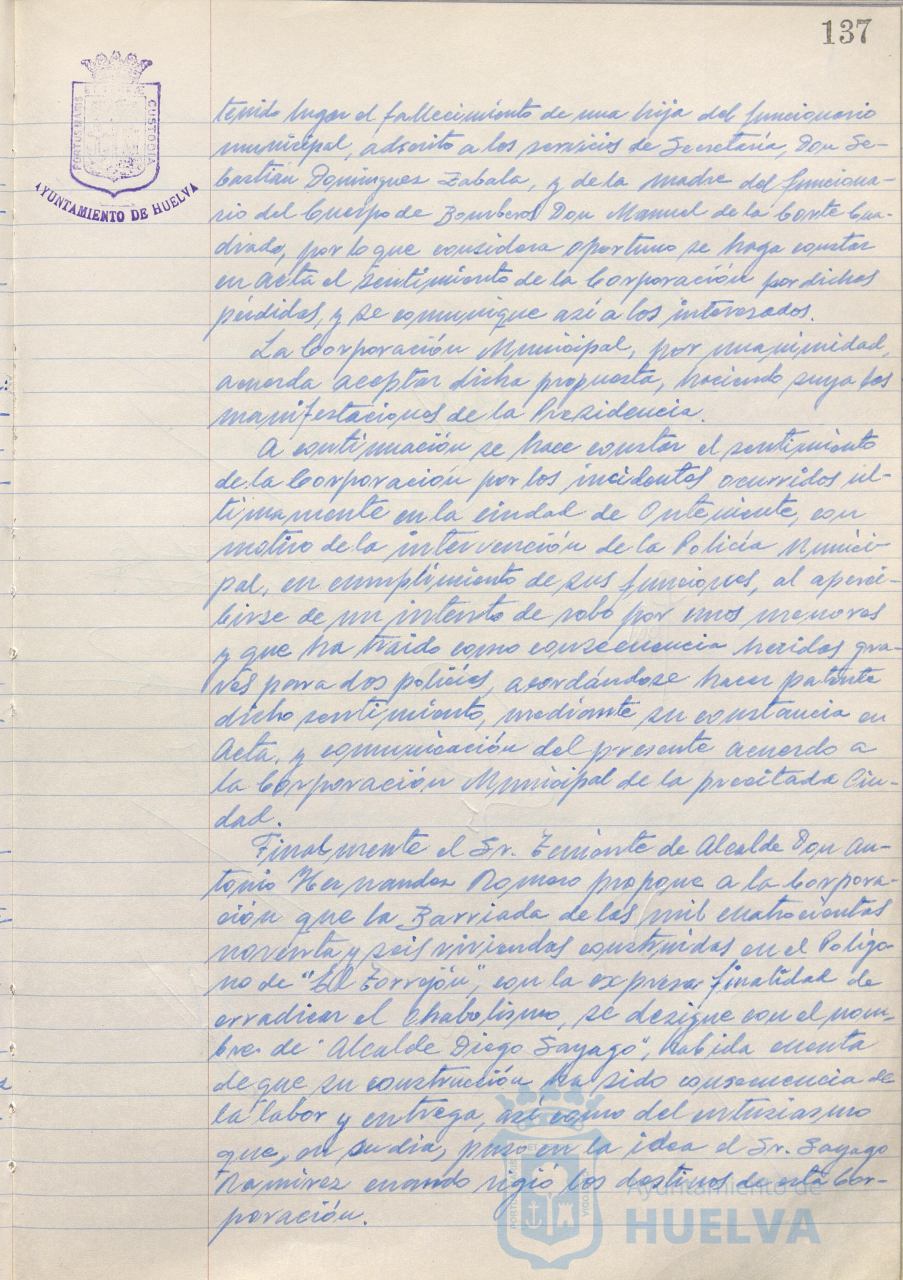 137
PORTUS MARIS
CUSTODIA
AYUNTAMIENTO DE HUELVA
tenido lugar el fallecimiento de una hija del funcionario
municipal, adscrito a los servicios de Secretaría, Don Se-
bastián Domínguez Zabala, y de la madre del funciona-
rio del Cuerpo de Bomberos Don Manuel de la Corte Cua-
drado, por lo que considera oportuno se haga constar
en Acta el sentimiento de la Corporación por dichas
pérdidas, y se comunique así a los interesados.
La Corporación Municipal, por unanimidad,
acuerda aceptar dicha propuesta, haciendo suya las
manifestaciones de la Presidencia.
A continuación se hace constar el sentimiento
de la Corporación por los incidentes ocurridos úl-
timamente en la ciudad de Onteniente, con
motivo de la intervención de la Policía Munici-
pal, en cumplimiento de sus funciones, al aperci-
birse de un intento de robo por unos menores
y que ha traido como consecuencia heridas gra-
ves para dos policías, acordándose hacer patente
dicho sentimiento, mediante su constancia en
Acta, y comunicación del presente acuerdo a
la Corporación Municipal de la precitada Ciu-
dad.
Finalmente el Sr. Teniente de Alcalde Don An-
tonio Hernandez Romero propone a la Corpora-
ción que la Barriada de las mil cuatrocientas
noventa y seis viviendas construidas en el Polígo-
no de "El Torrejón", con la expresa finalidad de
erradicar el chabolismo, se designe con el nom-
bre de "Alcalde Diego Sayago", habida cuenta
de que su construcción ha sido consecuencia de
la labor y entrega, así como del entusiasmo
que, en su dia, puso en la idea el Sr. Sayago
Ramírez cuando rigió los destinos de esta Cor-
poración.
Ayuntamiento de
HUELVA